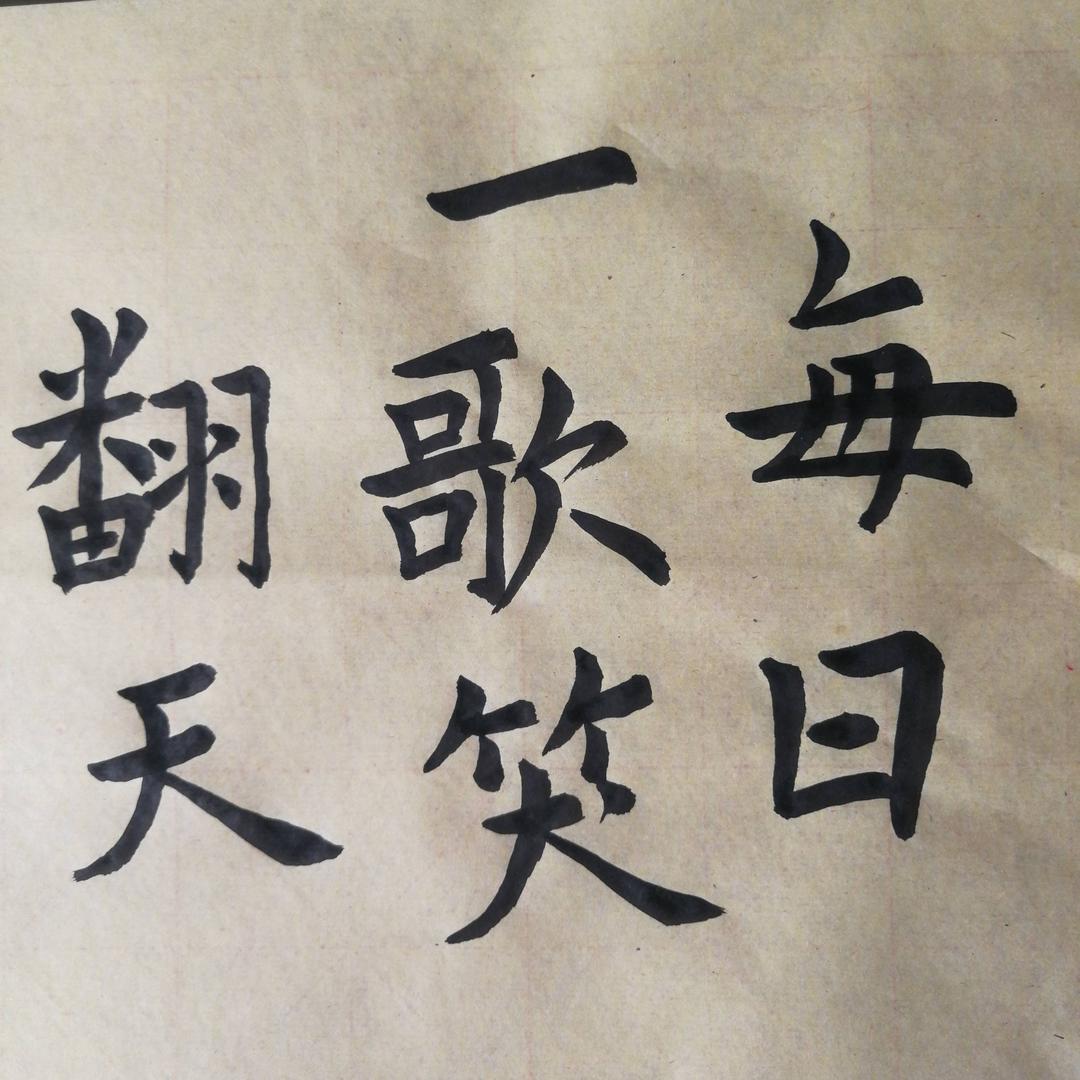 每日
一歌笑
翻天